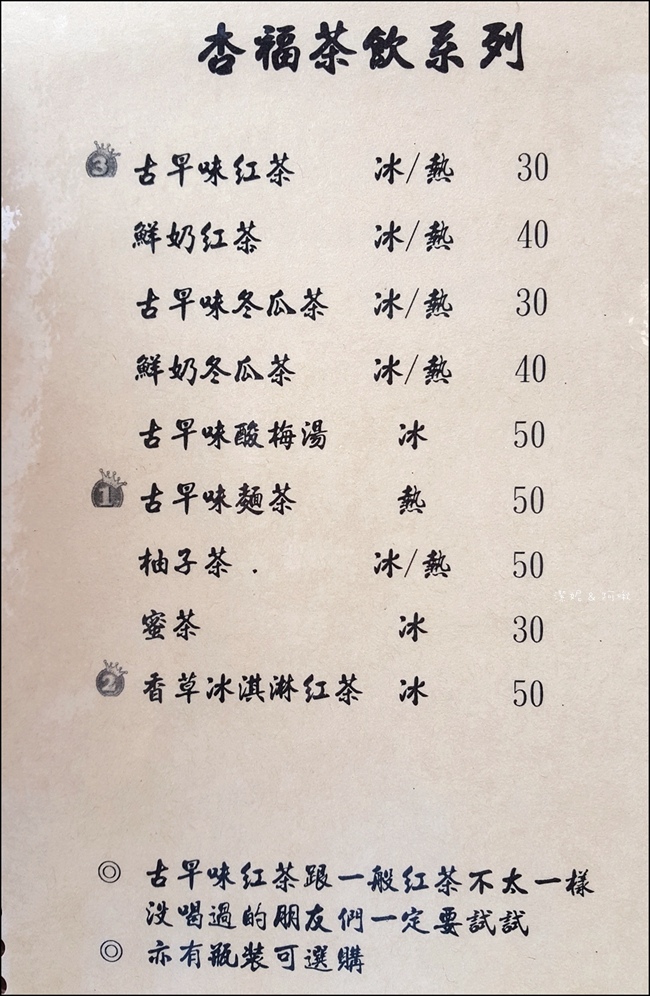 杏福茶飲系列
3 古早味紅茶 冰/熱 30
鮮奶紅茶 冰/熱 40
古早味冬瓜茶 冰/熱 30
鮮奶冬瓜茶 冰/熱 40
古早味酸梅湯 冰 50
1 古早味麵茶 熱 50
柚子茶 . 冰/熱 50
蜜茶 冰 30
2 香草冰淇淋紅茶 冰 50
◎ 古早味紅茶跟一般紅茶不太一樣
沒喝過的朋友們一定要試試
◎ 亦有瓶裝可選購